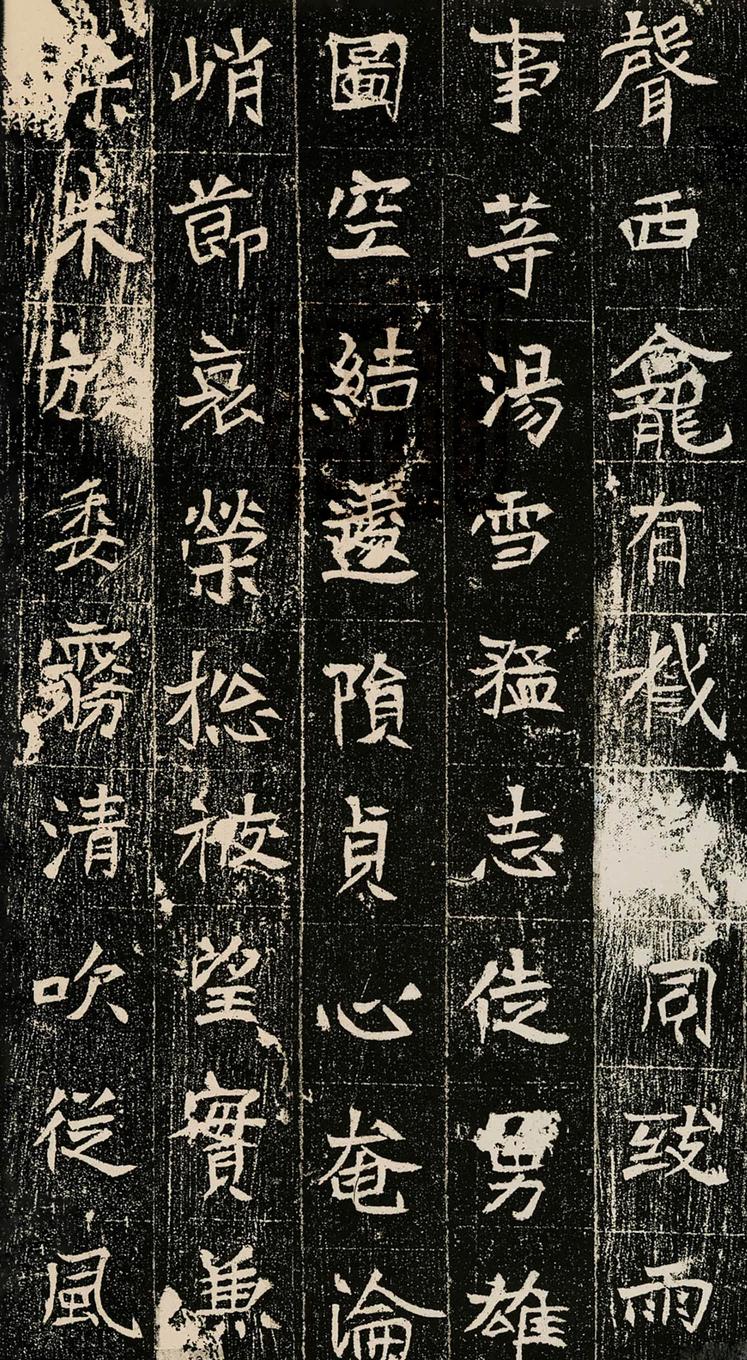 聲西龕有截同致雨
事等湯雪猛志徒男雄
圖空結遽隕貞心奄淪
峭節哀榮揔被望實兼
朱委霧清吹從風